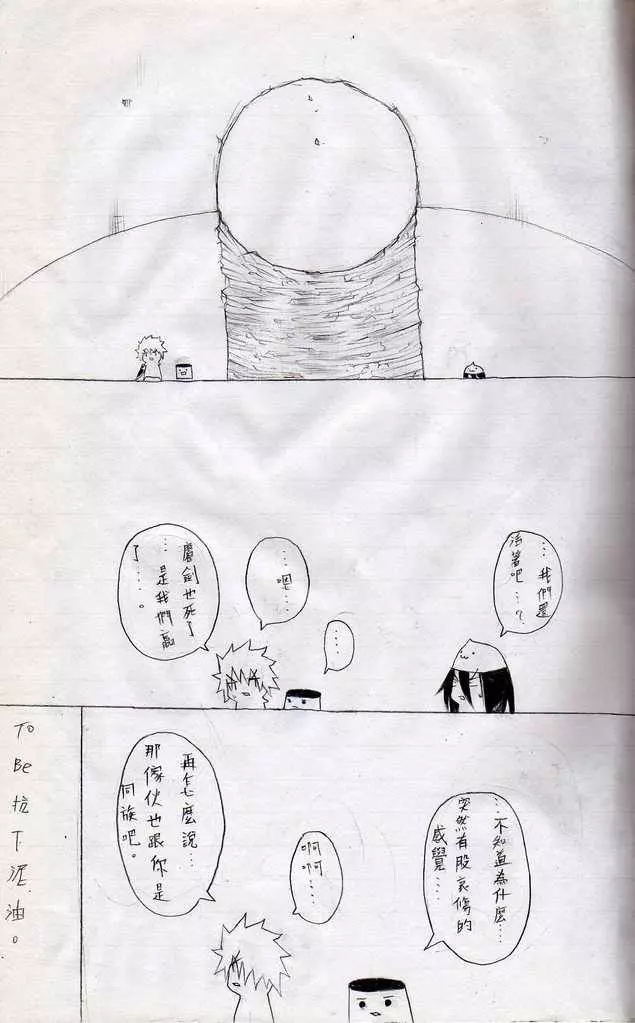 …我們還
活著吧…？
…嗯…
……
魔劍也死了
…是我們贏
了……。
…不知道為什麼…
突然有股哀傷的
感覺……
啊啊……
再怎麼說…
那傢伙也跟你是
同族吧。
TO
Be 抗下泥油。